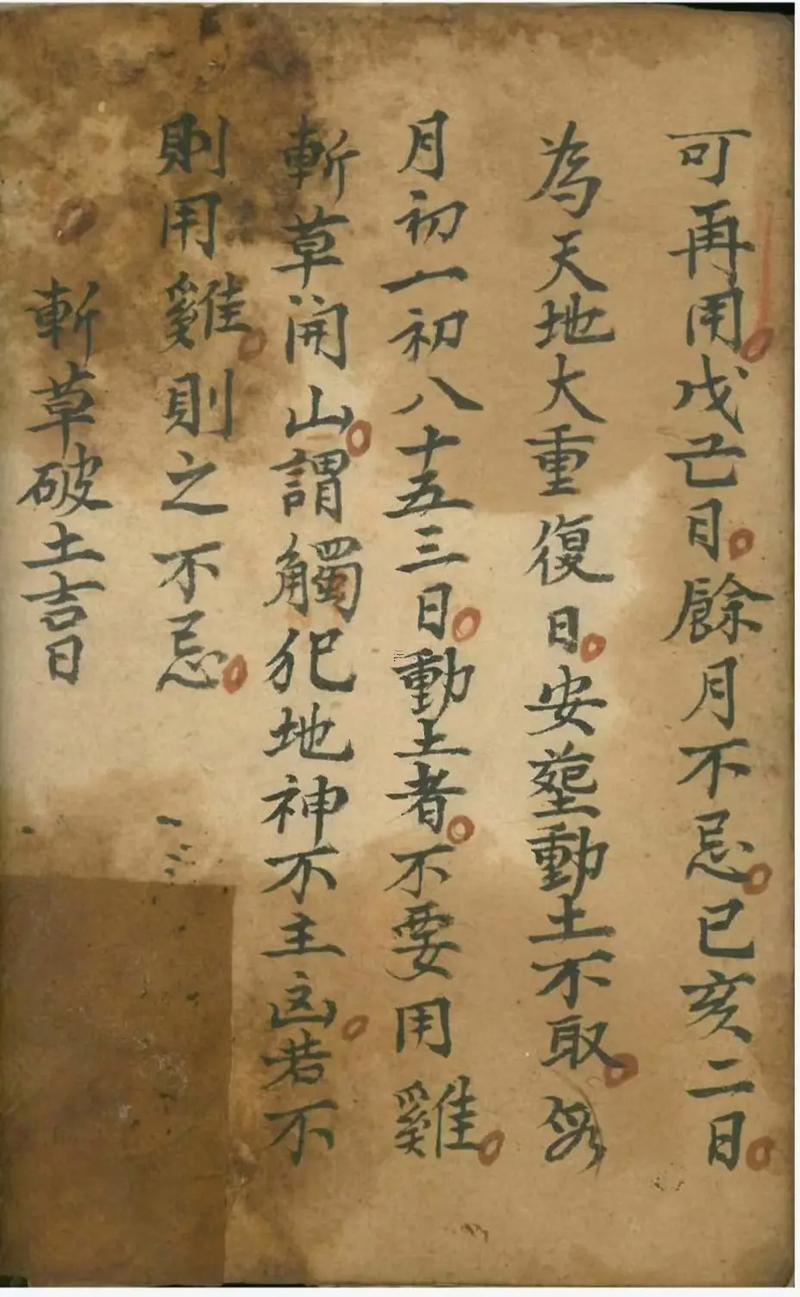 可再用戊己日餘月不忌已亥二日
為天地大重復日安塟動土不取每
月初一初八十五三日動土者不要用雞
斬草開山謂觸犯地神不主凶若不
則用雞則之不忌
斬草破土吉日